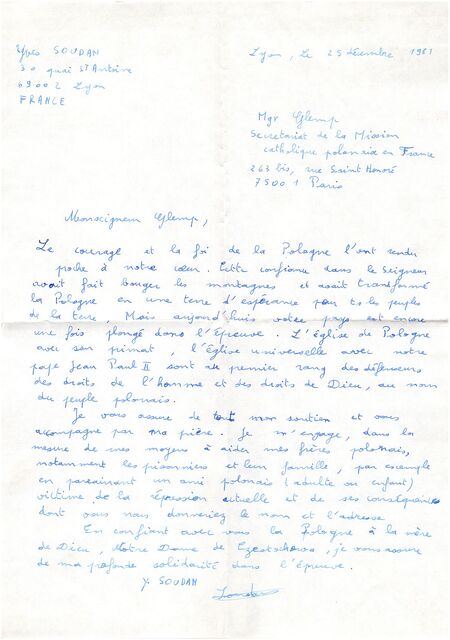 Yves SOUDAN
30 quai St Antoine
69002 Lyon
FRANCE
Lyon, le 25 décembre 1981
Mgr Glemp
Secretariat de la Mission
catholique polonaise en France
263 bis, rue Saint Honoré
75001 Paris
Monseigneur Glemp,
Le courage et la foi de la Pologne l'ont rendu
proche à notre cœur. Cette confiance dans le Seigneur
avait fait bouger les montagnes et avait transformé
la Pologne en une terre d'espérance pour ts les peuples
de la terre. Mais aujourd'hui votre pays est encore
une fois plongé dans l'épreuve. L'église de Pologne
avec son primat, l'église universelle avec notre
pape Jean Paul II sont au premier rang des défenseurs
des droits de l'homme et des droits de Dieu, au nom
du peuple polonais.
Je vous assure de tout mon soutien et vous
accompagne par ma prière. Je m'engage, dans la
mesure de mes moyens à aider mes frères polonais,
notamment les prisonniers et leur famille, par exemple
en parrainant un ami polonais (adulte ou enfant)
victime de la répression actuelle et de ses conséquences
dont vous nous donneriez le nom et l'adresse
En confiant avec vous la Pologne à la mère
de Dieu, Notre Dame de Czestochowa, je vous assure
de ma profonde solidarité dans l'épreuve.
Y. SOUDAN
Soudan